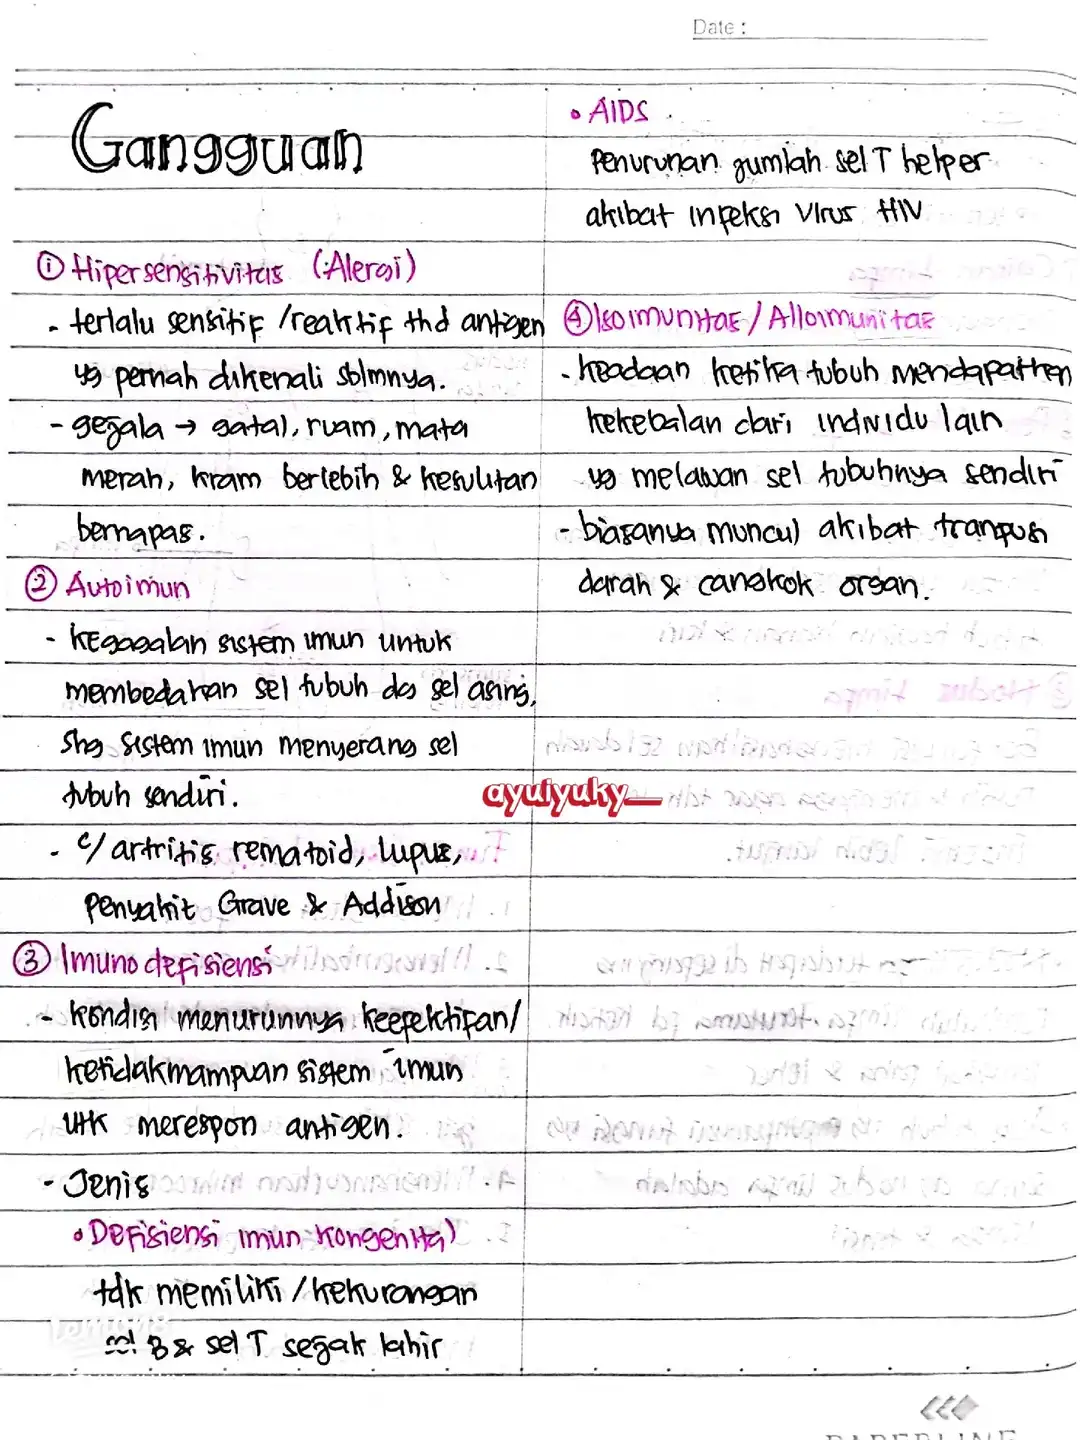 Date :
Gangguan
① Hipersensitivitas (Alergi)
- terlalu sensitif / reaktif thd antigen
yg pernah dikenali sblmnya.
- gejala → gatal, ruam, mata
merah, kram berlebih & kesulitan
bernapas.
② Autoimun
- kegagalan sistem imun untuk
membedakan sel tubuh dg sel asing,
shg sistem imun menyerang sel
tubuh sendiri.
- c/ artritis rematoid, lupus,
Penyakit Grave & Addison
③ Imunodefisiensi
- kondisi menurunnya keefektifan/
ketidakmampuan sistem imun
utk merespon antigen.
- Jenis
• Defisiensi imun kongenital
tdk memiliki / kekurangan
sel B & sel T sejak lahir
• AIDS
Penurunan jumlah sel T helper
akibat infeksi virus HIV
④ Isoimunitas / Alloimunitas
- keadaan ketika tubuh mendapatkan
kekebalan dari individu lain
yg melawan sel tubuhnya sendiri
- biasanya muncul akibat tranfusi
darah & cangkok organ.
ayuiyuky__